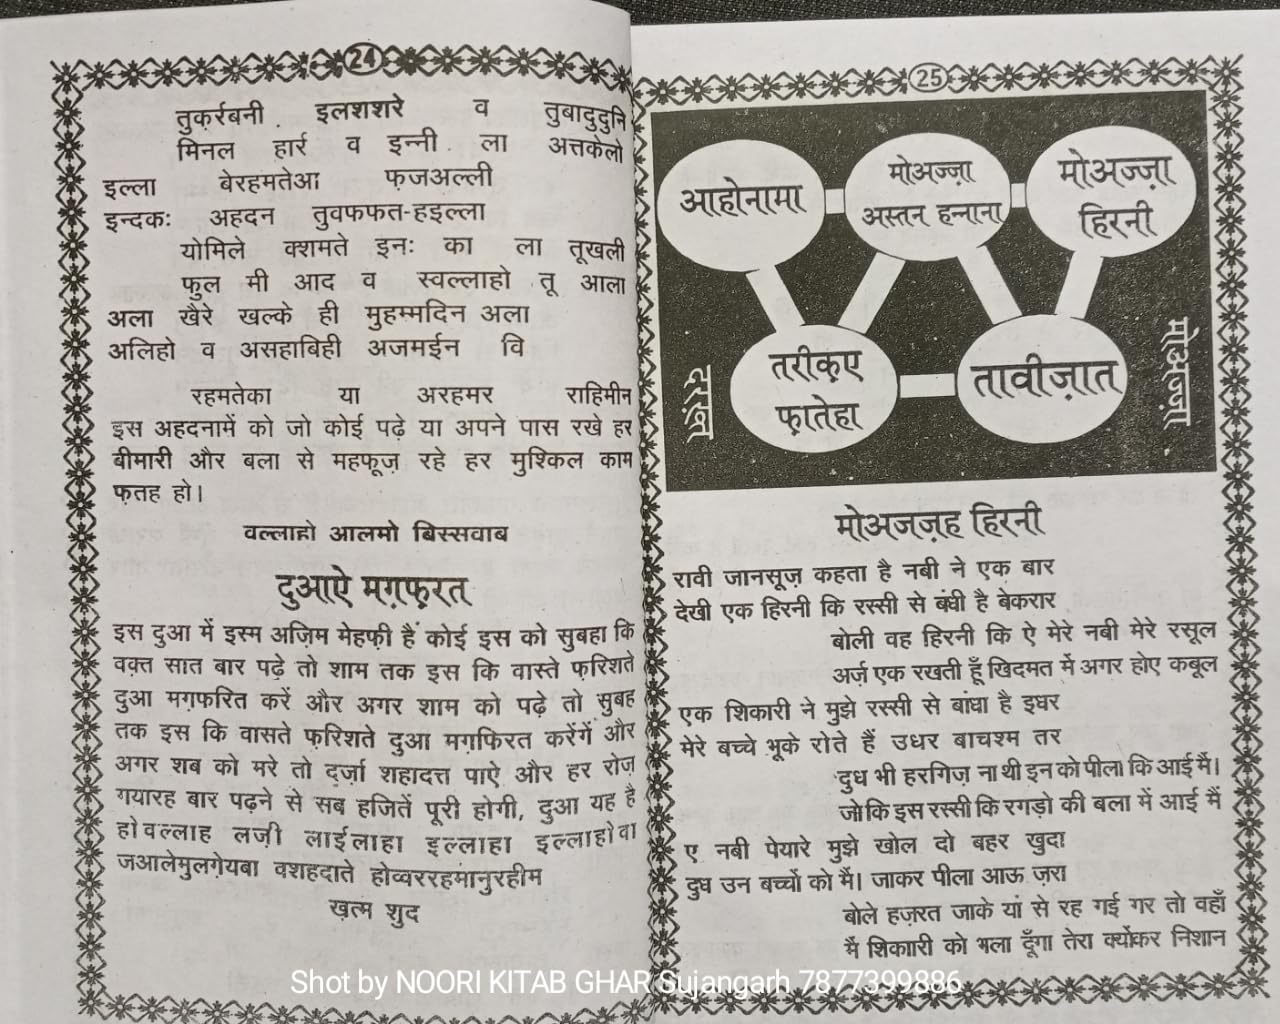 24
तुकर्रबनी इलशशरे व तुबादुदुनि
मिनल हार्र व इन्नी ला अत्तकेलो
इल्ला बेरहमतेआ फ़जअल्ली
इन्दकः अहदन तुवफफत-हइल्ला
योमिले क्शमते इनः का ला तूखली
फुल मी आद व स्वल्लाहो तू आला
अला खैरे खल्के ही मुहम्मदिन अला
अलिहो व असहाबिही अजमईन वि
रहमतेका या अरहमर राहिमीन
इस अहदनामें को जो कोई पढ़े या अपने पास रखे हर
बीमारी और बला से महफूज़ रहे हर मुश्किल काम
फ़तह हो।
वल्लाहो आलमो बिस्सवाब
दुआऐ मग़फ़रत
इस दुआ में इस्म अज़िम मेहफ़ी हैं कोई इस को सुबहा कि
वक़्त सात बार पढ़े तो शाम तक इस कि वास्ते फ़रिशते
दुआ मग़फरित करें और अगर शाम को पढ़े तो सुबह
तक इस कि वासते फ़रिशते दुआ मग़फिरत करेंगें और
अगर शब को मरे तो दर्ज़ा शहादत्त पाऐ और हर रोज़
गयारह बार पढ़ने से सब हजितें पूरी होगी, दुआ यह है
होवल्लाह लज़ी लाईलाहा इल्लाहा इल्लाहोवा
जआलेमुलगे़यबा वशहदाते होव्वररहमांनुरहीम
ख़त्म शुद
25
आहोनामा
मोअज्ज़ा
अस्तन हन्नाना
मोअज्ज़ा
हिरनी
तरीक़ए
फ़ातेहा
तावीज़ात
दरख़्त
मोअज्ज़ा
मोअजज़ह हिरनी
रावी जानसूज़ कहता है नबी ने एक बार
देखी एक हिरनी कि रस्सी से बंधी है बेकरार
बोली वह हिरनी कि ऐ मेरे नबी मेरे रसूल
अर्ज़ एक रखती हूँ खिदमत में अगर होए कबूल
एक शिकारी ने मुझे रस्सी से बांधा है इधर
मेरे बच्चे भूके रोते हैं उधर बाचश्म तर
दुध भी हरगिज़ ना थी इन को पीला कि आई मैं।
जो कि इस रस्सी कि रगड़ो की बला में आई मैं
ए नबी पेयारे मुझे खोल दो बहर खुदा
दुध उन बच्चों को मैं। जाकर पीला आऊ ज़रा
बोले हज़रत जाके यां से रह गई गर तो वहाँ
मैं शिकारी को भला दूँगा तेरा क्योंकर निशान
Shot by NOORI KITAB GHAR Sujangarh 7877399886